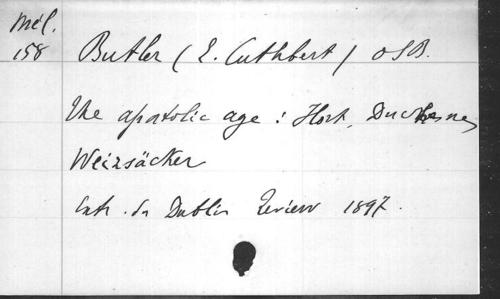 Mél.
158 Butler (E. Cuthbert) OSB.
The apostolic age : Hort, Duchesne,
Weizsäcker
Extr. du Dublin Review 1897.